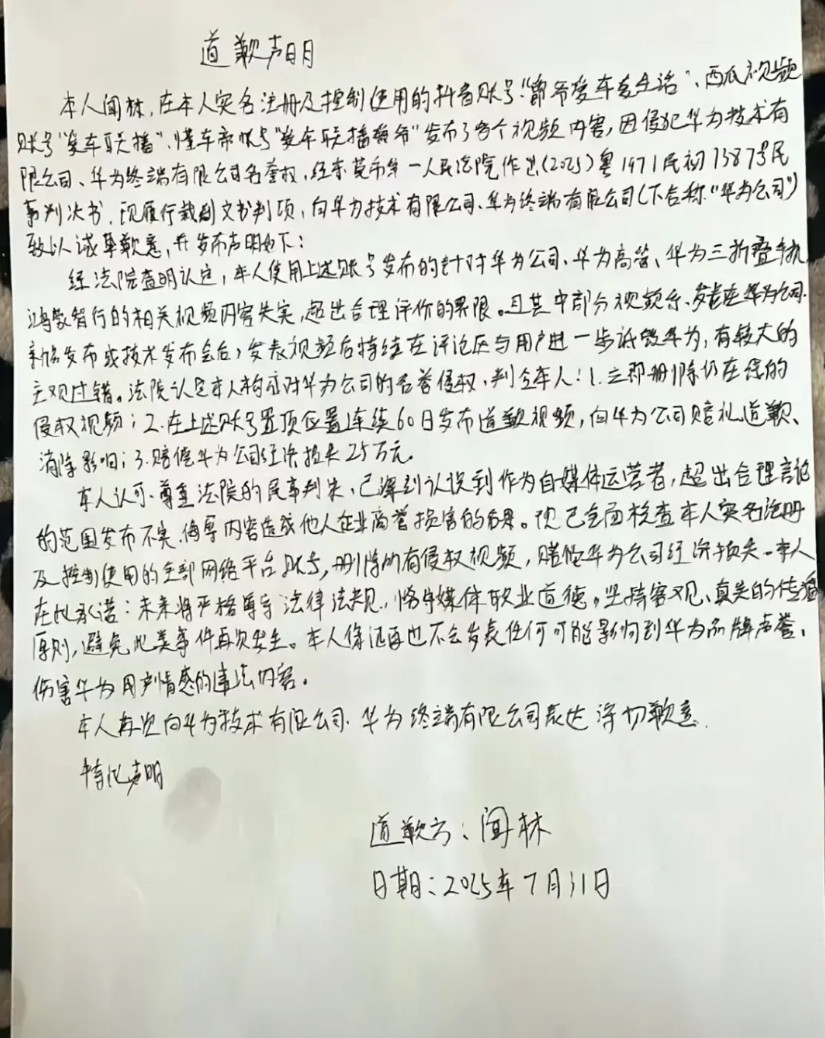 道歉声明
本人闻林,在本人实名注册及控制使用的抖音账号“爵爷爱车爱生活”、西瓜视频
账号“爱车联播”、懂车帝帐号“爱车联播爵爷”发布了多个视频内容,因侵犯华为技术有
限公司、华为终端有限公司名誉权,经东莞市第一人民法院作出(2025)粤1971民初13873号民
事判决书,现履行裁判文书判项,向华为技术有限公司、华为终端有限公司(下合称“华为公司”)
致以诚挚歉意,并发布声明如下:
经法院查明认定,本人使用上述账号发布的针对华为公司、华为高管、华为三折叠手机
鸿蒙智行的相关视频内容失实,超出合理评价的界限。且其中部分视频系发表在华为公司
新品发布或技术发布会后,发表视频后持续在评论区与用户进一步诋毁华为,有较大的
主观过错。法院认定本人构成对华为公司的名誉侵权,判令本人:1.立即删除仍在线的
侵权视频;2.在上述账号置顶位置连续60日发布道歉视频,向华为公司赔礼道歉、
消除影响;3.赔偿华为公司经济损失25万元。
本人认可、尊重法院的民事判决,已深刻认识到作为自媒体运营者,超出合理言论
的范围发布不实、侮辱内容造成他人企业商誉损害的后果。现已全面核查本人实名注册
及控制使用的全部网络平台账号,删除所有侵权视频,赔偿华为公司经济损失。本人
在此承诺:未来将严格遵守法律法规,恪守媒体职业道德,坚持客观、真实的传播
原则,避免此类事件再次发生。本人保证再也不会发表任何可能影响到华为品牌声誉、
伤害华为用户情感的违法内容。
本人再次向华为技术有限公司、华为终端有限公司表达深切歉意.
特此声明
道歉方:闻林
日期:2025年7月31日